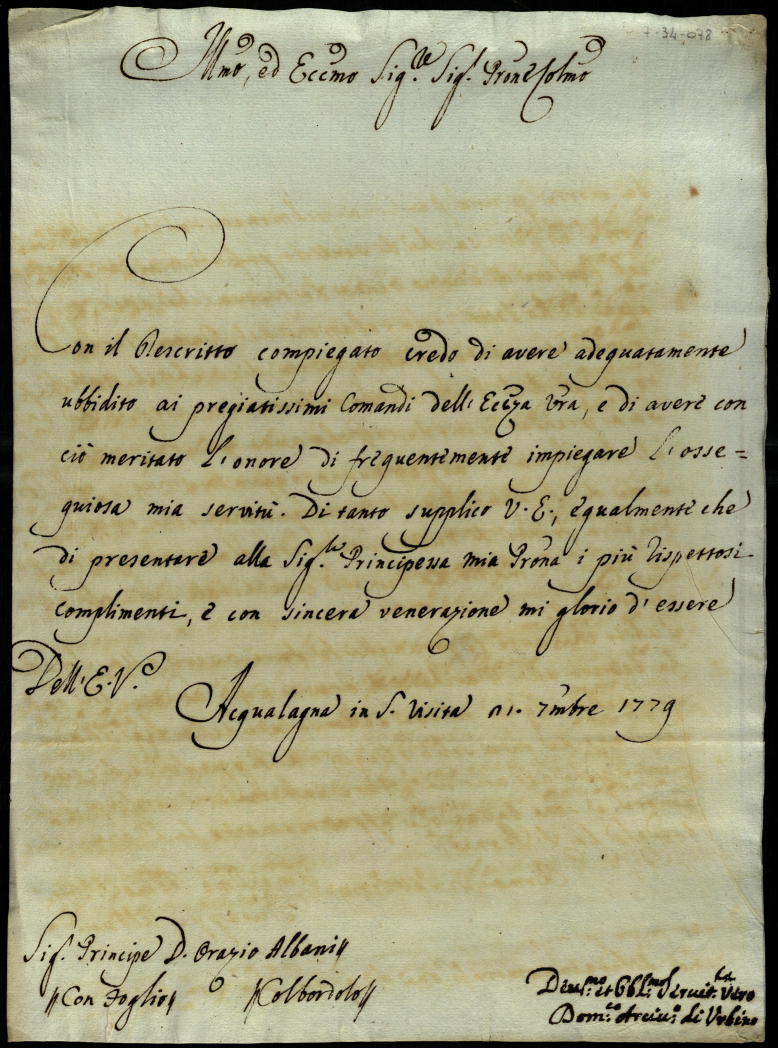 7-34-078
Illmo, ed Eccmo Sig.re Sig.r Prone Colmo
Con il Rescritto compiegato credo di avere adeguatamente
ubbidito ai pregiatissimi Comandi dell'Eccza Vra, e di avere con
ciò meritato l'onore di frequentemente impiegare l'osse=
quiosa mia servitù. Di tanto supplico V.E., egualmente che
di presentare alla Sig.ra Principessa mia Prona i più rispettosi
complimenti, e con sincera venerazione mi glorio d'essere
Dell'E.V.
Acqualagna in S. Visita 7mbre 1779
Sig.r Principe D. Orazio Albani//
//Con Foglio// //Colbordolo//
Devmo et Obblmo Servit. Vero
Domco Arciv.o di Urbino